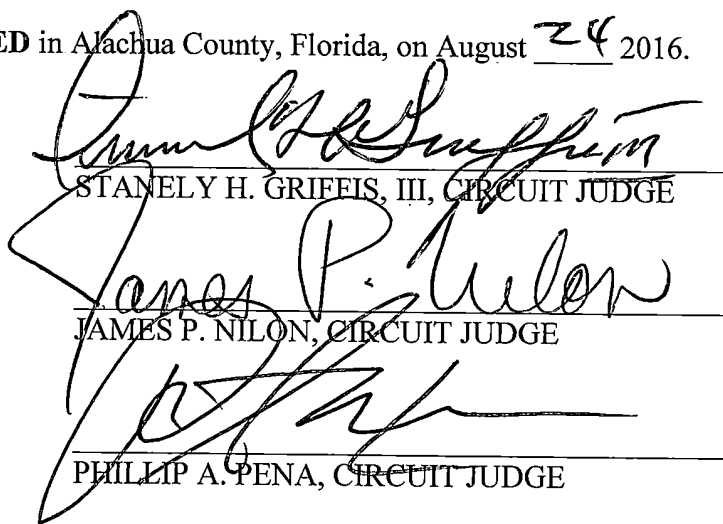 ED in Alachua County, Florida, on August 24 2016.
STANELY H. GRIFFIS, III, CIRCUIT JUDGE
James P. Nilon
JAMES P. NILON, CIRCUIT JUDGE
PHILLIP A. PENA, CIRCUIT JUDGE